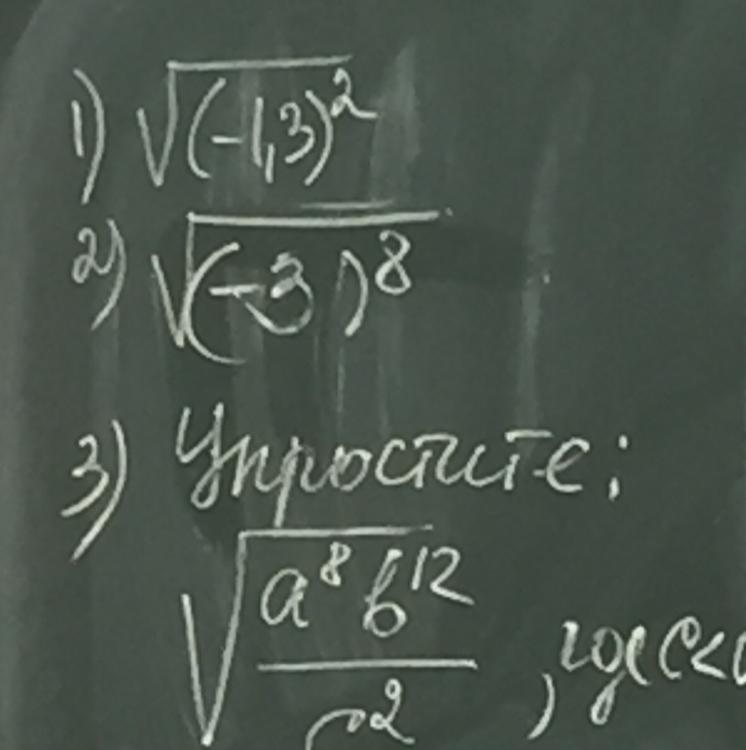 1) √(-1,3)²
2) √(-3)⁸
3) Упростите:
√(a⁸b¹²/c²), где c<0